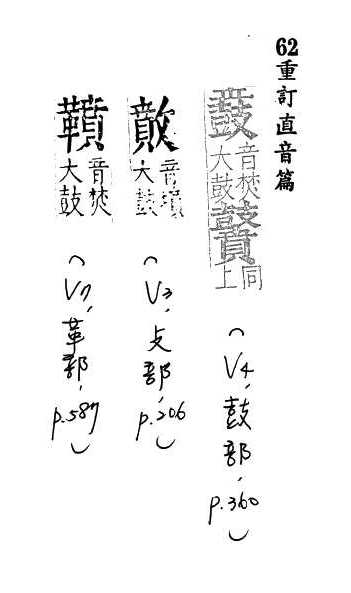 62重訂直音篇
鼖
音焚
大鼓
同
上
(V4, 鼓部, p.360)
音墳
大鼓
(V3, 攴部, p.206)
音焚
大鼓
(V7, 革部, p.587)